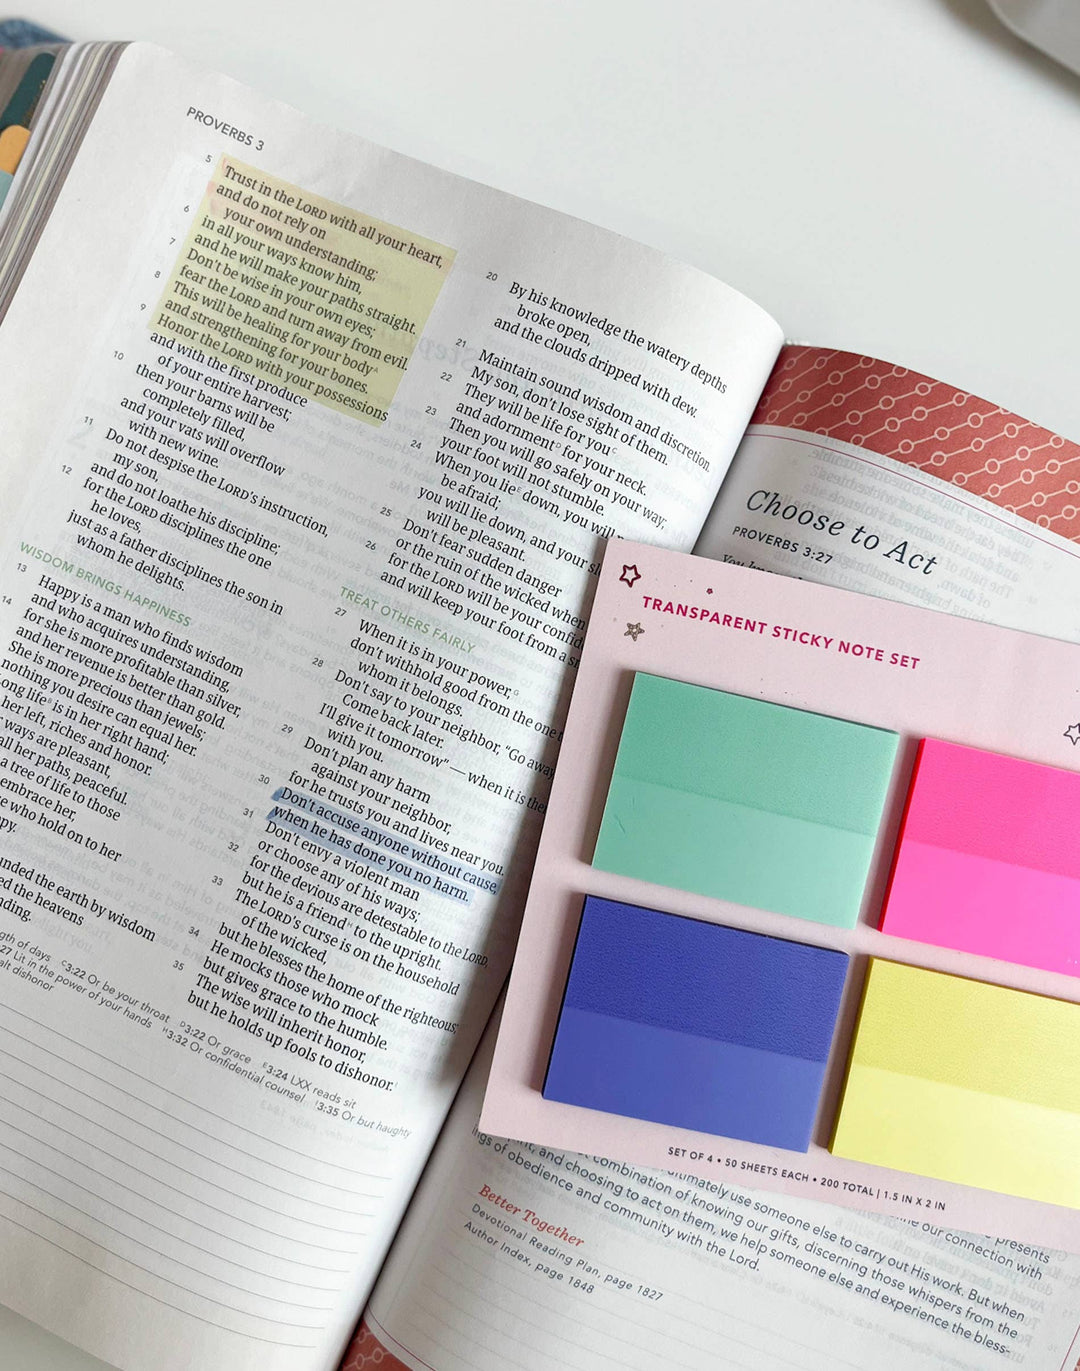 PROVERBS 3
5 Trust in the LORD with all your heart,
and do not rely on
your own understanding;
6 in all your ways know him,
and he will make your paths straight.
7 Don't be wise in your own eyes;
fear the LORD and turn away from evil.
8 This will be healing for your body^A
and strengthening for your bones.
9 Honor the LORD with your possessions
and with the first produce
of your entire harvest;
10 then your barns will be
completely filled,
and your vats will overflow
with new wine.
11 Do not despise the LORD's instruction,
my son,
and do not loathe his discipline;
12 for the LORD disciplines the one
he loves,
just as a father disciplines the son in
whom he delights.
WISDOM BRINGS HAPPINESS
13 Happy is a man who finds wisdom
and who acquires understanding,
14 for she is more profitable than silver,
and her revenue is better than gold.
She is more precious than jewels;
nothing you desire can equal her.
long life^B is in her right hand;
her left, riches and honor.
ways are pleasant,
all her paths, peaceful.
a tree of life to those
embrace her,
who hold on to her
the earth by wisdom
the heavens
20 By his knowledge the watery depths
broke open,
and the clouds dripped with dew.
21 Maintain sound wisdom and discretion.
My son, don't lose sight of them.
22 They will be life for you^C
and adornment^D for your neck.
23 Then you will go safely on your way;
your foot will not stumble.
24 When you lie^E down, you will
be afraid;
you will lie down, and your
will be pleasant.
25 Don't fear sudden danger
or the ruin of the wicked when
26 for the LORD will be your
and will keep your foot from a
TREAT OTHERS FAIRLY
27 When it is in your power,^G
don't withhold good from the one
whom it belongs.
28 Don't say to your neighbor, "Go away
Come back later.
I'll give it tomorrow" — when it is
with you.
29 Don't plan any harm
against your neighbor,
for he trusts you and lives near you.
30 Don't accuse anyone without cause,
when he has done you no harm.
31 Don't envy a violent man
or choose any of his ways;
32 for the devious are detestable to the LORD,
but he is a friend^H to the upright.
33 The LORD's curse is on the household
of the wicked,
but he blesses the home of the righteous;
34 He mocks those who mock
but gives grace to the humble.
35 The wise will inherit honor,
but he holds up fools to dishonor.^I
of days ^C3:22 Or be your throat ^D3:22 Or grace ^E3:24 LXX reads sit
27 Lit in the power of your hands ^H3:32 Or confidential counsel ^I3:35 Or but haughty
dishonor
Choose to Act
PROVERBS 3:27
TRANSPARENT STICKY NOTE SET
SET OF 4 • 50 SHEETS EACH • 200 TOTAL | 1.5 IN X 2 IN
presents
use someone else to carry out His work. But when
combination of knowing our gifts, discerning those whispers from the
and choosing to act on them, we help someone else and experience the bless-
ings of obedience and community with the Lord.
our connection with
Better Together
Devotional Reading Plan, page 1827
Author Index, page 1848